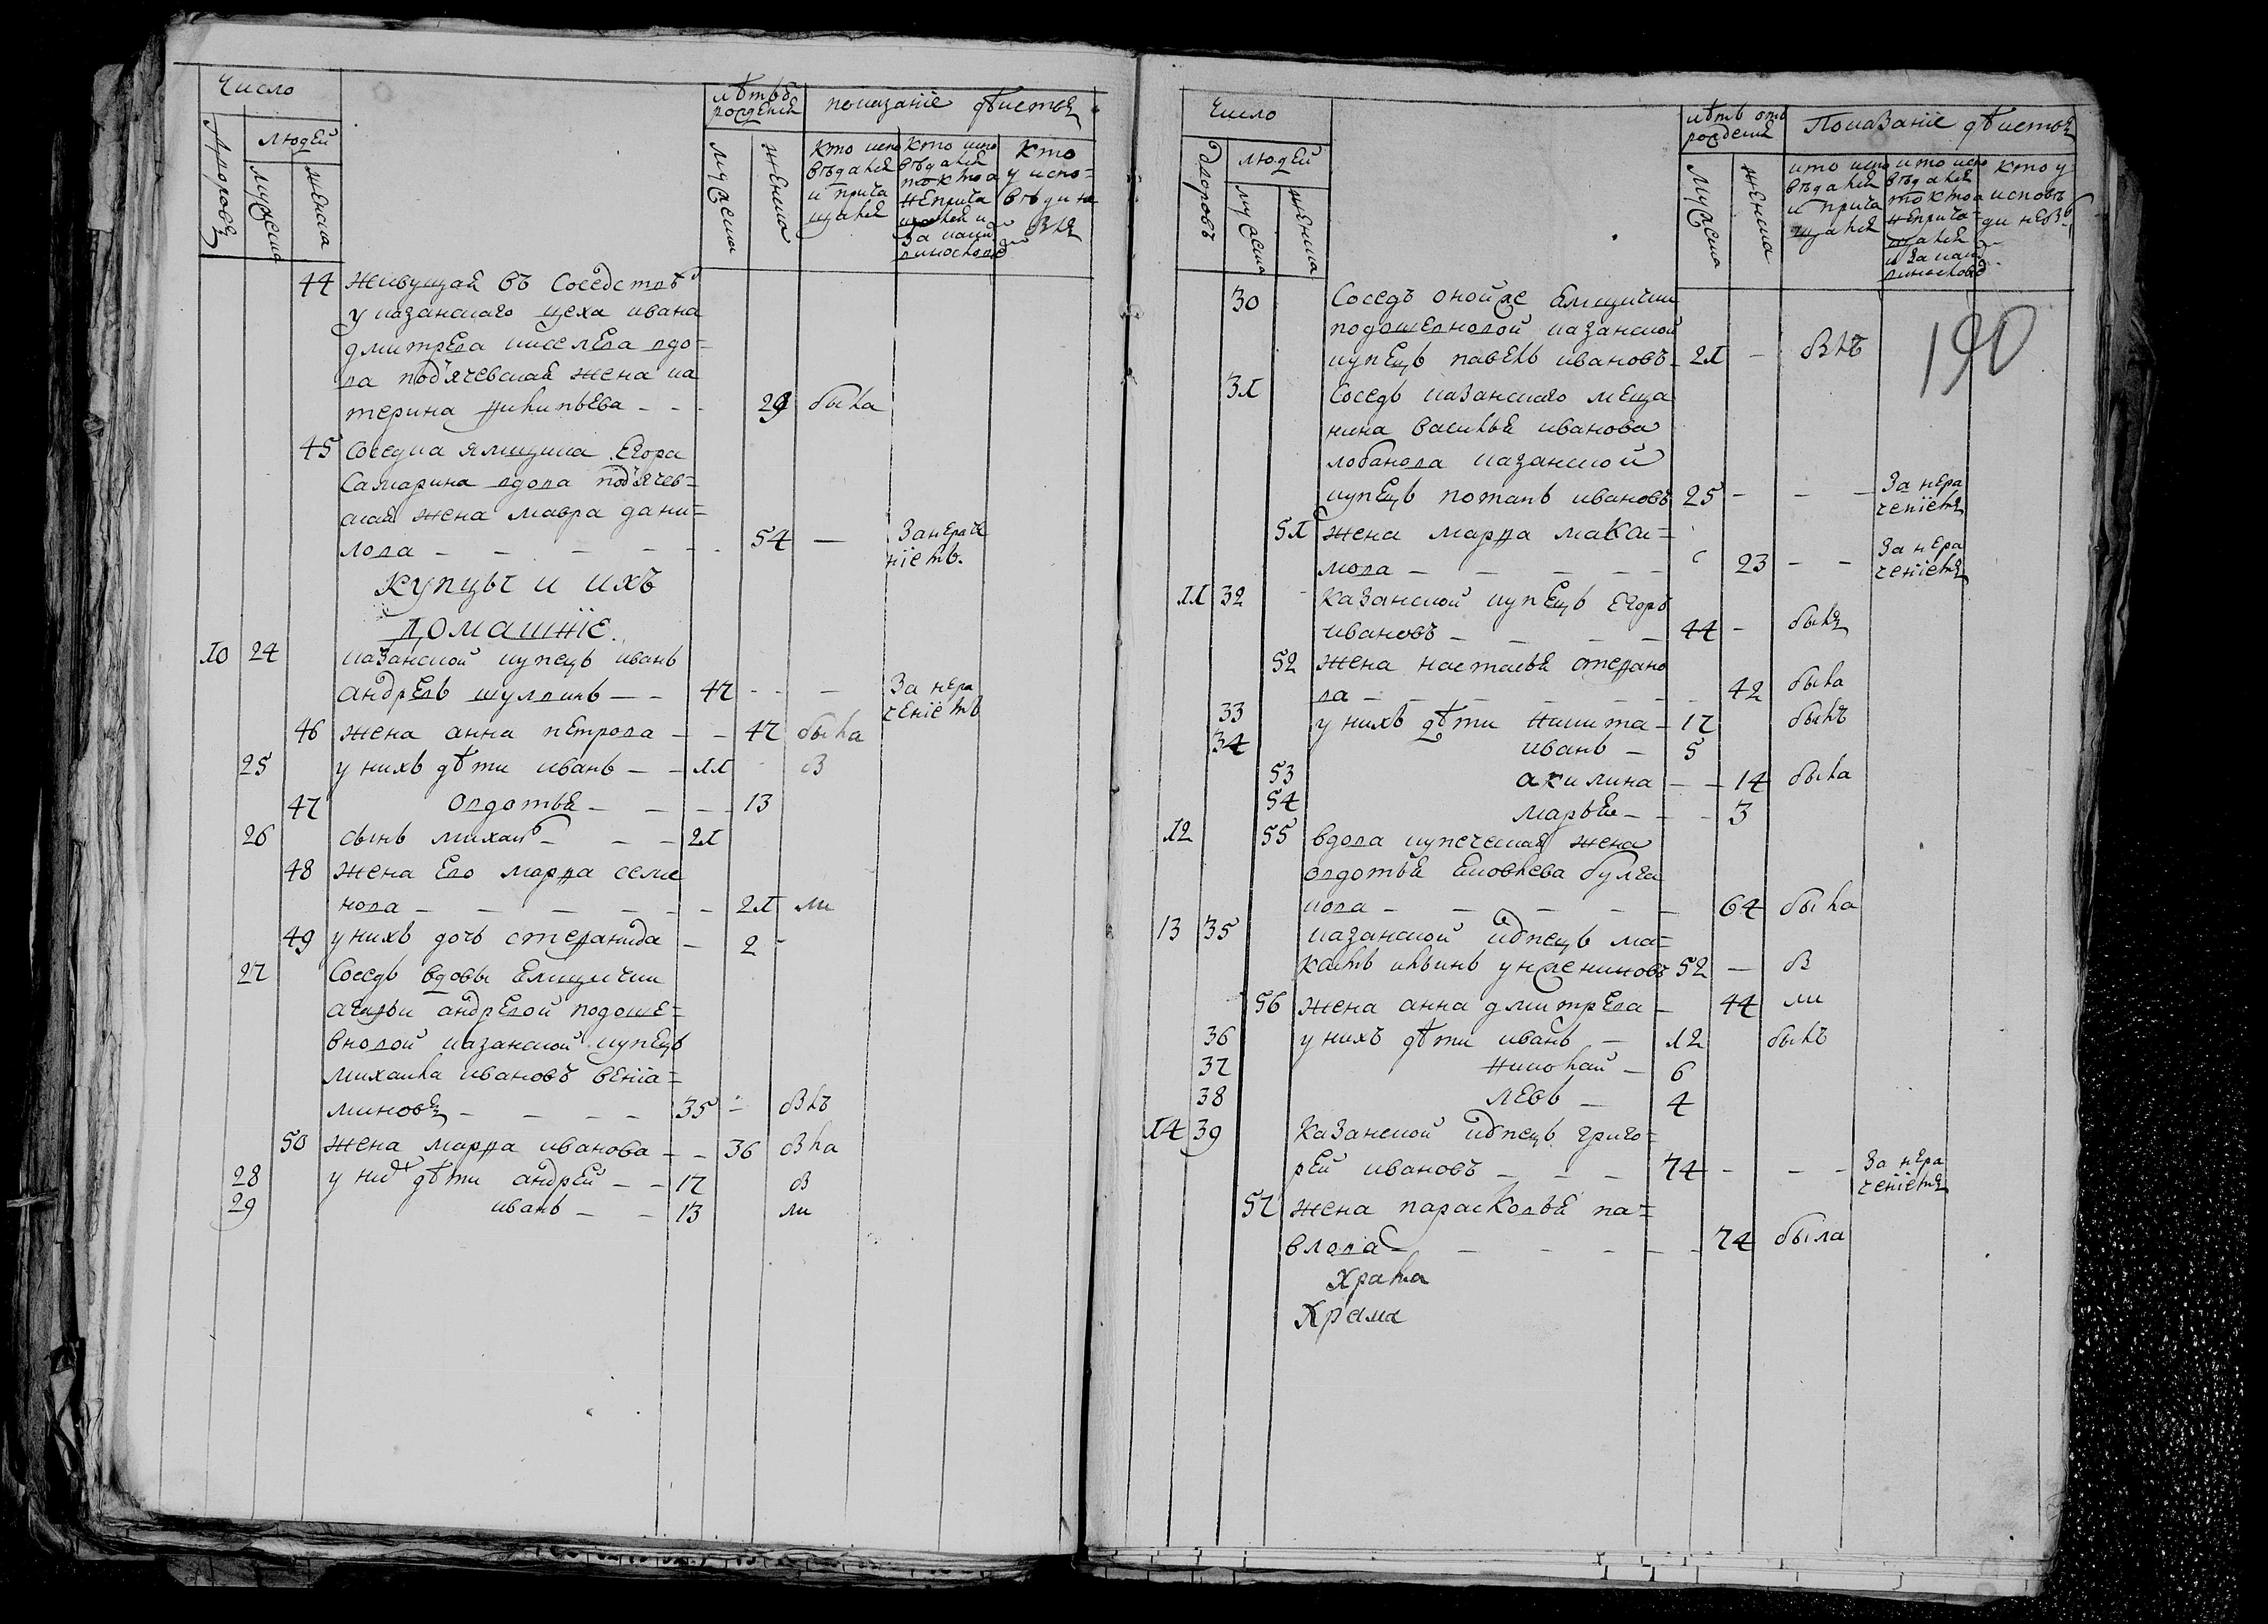 Число
лѣтъ ѿ рожденія
показаніе дѣиствъ
дворовъ
людей
мужеска
женска
мужеска
женска
кто испо
вѣдался
и прича
щался
кто испо
вѣдался
токмо а
не прича
щался и
за какимъ
виносло
кто
у испо=
вѣди не
былъ
44 живущая въ соседствѣ
у казанскаго цеха ивана
дмитрева киселева вдо=
ва подъячевская жена ка
терина филипьева - - - 29 была
45 соседка ямщика егора
самарина вдова подъячев=
ская жена мавра дани=
лова - - - - - 54 — за нераче
ніемъ.
купцы и ихъ
домашніе.
10 24 казанской купецъ иванъ
андревъ шулвинъ - - 47 - - - за нера
ченіемъ
46 жена анна петрова - - 47 была
25 у нихъ дѣти иванъ - - 11 б
47 овдотья - - - 13
26 сынъ михаилъ - - - 21
48 жена его марфа семе
нова - - - - - - 21 ли
49 у нихъ дочь степанида - 2 -
27 соседъ вдовы ямщички
андревой подоше=
вновой казанской купецъ
михаила ивановъ веніа=
миновъ - - - - 35 - былъ
50 жена марфа иванова - - 36 была
28 у нихъ дѣти андрей - - 17 б
29 иванъ - - 13 ли
число
лѣтъ отъ
рожденія
Показаніе дѣиствъ
дворовъ
людей
мужеска
женска
мужеска
женска
кто испо
вѣдался
и прича
щался
кто испо
вѣдался
токмо а
не прича=
щался
и за каким
виносло
кто у
исповѣ
ди небы
190
30 соседъ оной же ямщички
подошевновой казанской
купецъ павелъ ивановъ - 21 - былъ
31 соседъ казанскаго меща
нина василья иванова
лобанова казанской
купецъ потапъ ивановъ 25 - - - за нера
ченіемъ
51 жена марфа макси=
мова - - - - - 23 - - за нера
ченіемъ
11 32 казанской купецъ егоръ
ивановъ - - - - 44 - былъ
52 жена настасья степано
ва - - - - - - 42 была
33 у нихъ дѣти никита - 17 былъ
34 иванъ - 5
53 акилина - - 14 была
54 марья - - - 3
12 55 вдова купеческая жена
овдотья яковлева булга
кова - - - - - 64 была
13 35 казанской купецъ ма=
ильинъ унженинов 52 - б
56 жена анна дмитрева - 44 ли
36 у нихъ дѣти иванъ - 12 былъ
37 николай - 6
38 левъ - 4
14 39 казанской купецъ григо=
рей ивановъ - - - 74 - - - за нера
ченіемъ
57 жена парасковья па=
влова - - - - - - 74 была
Храма
Храма